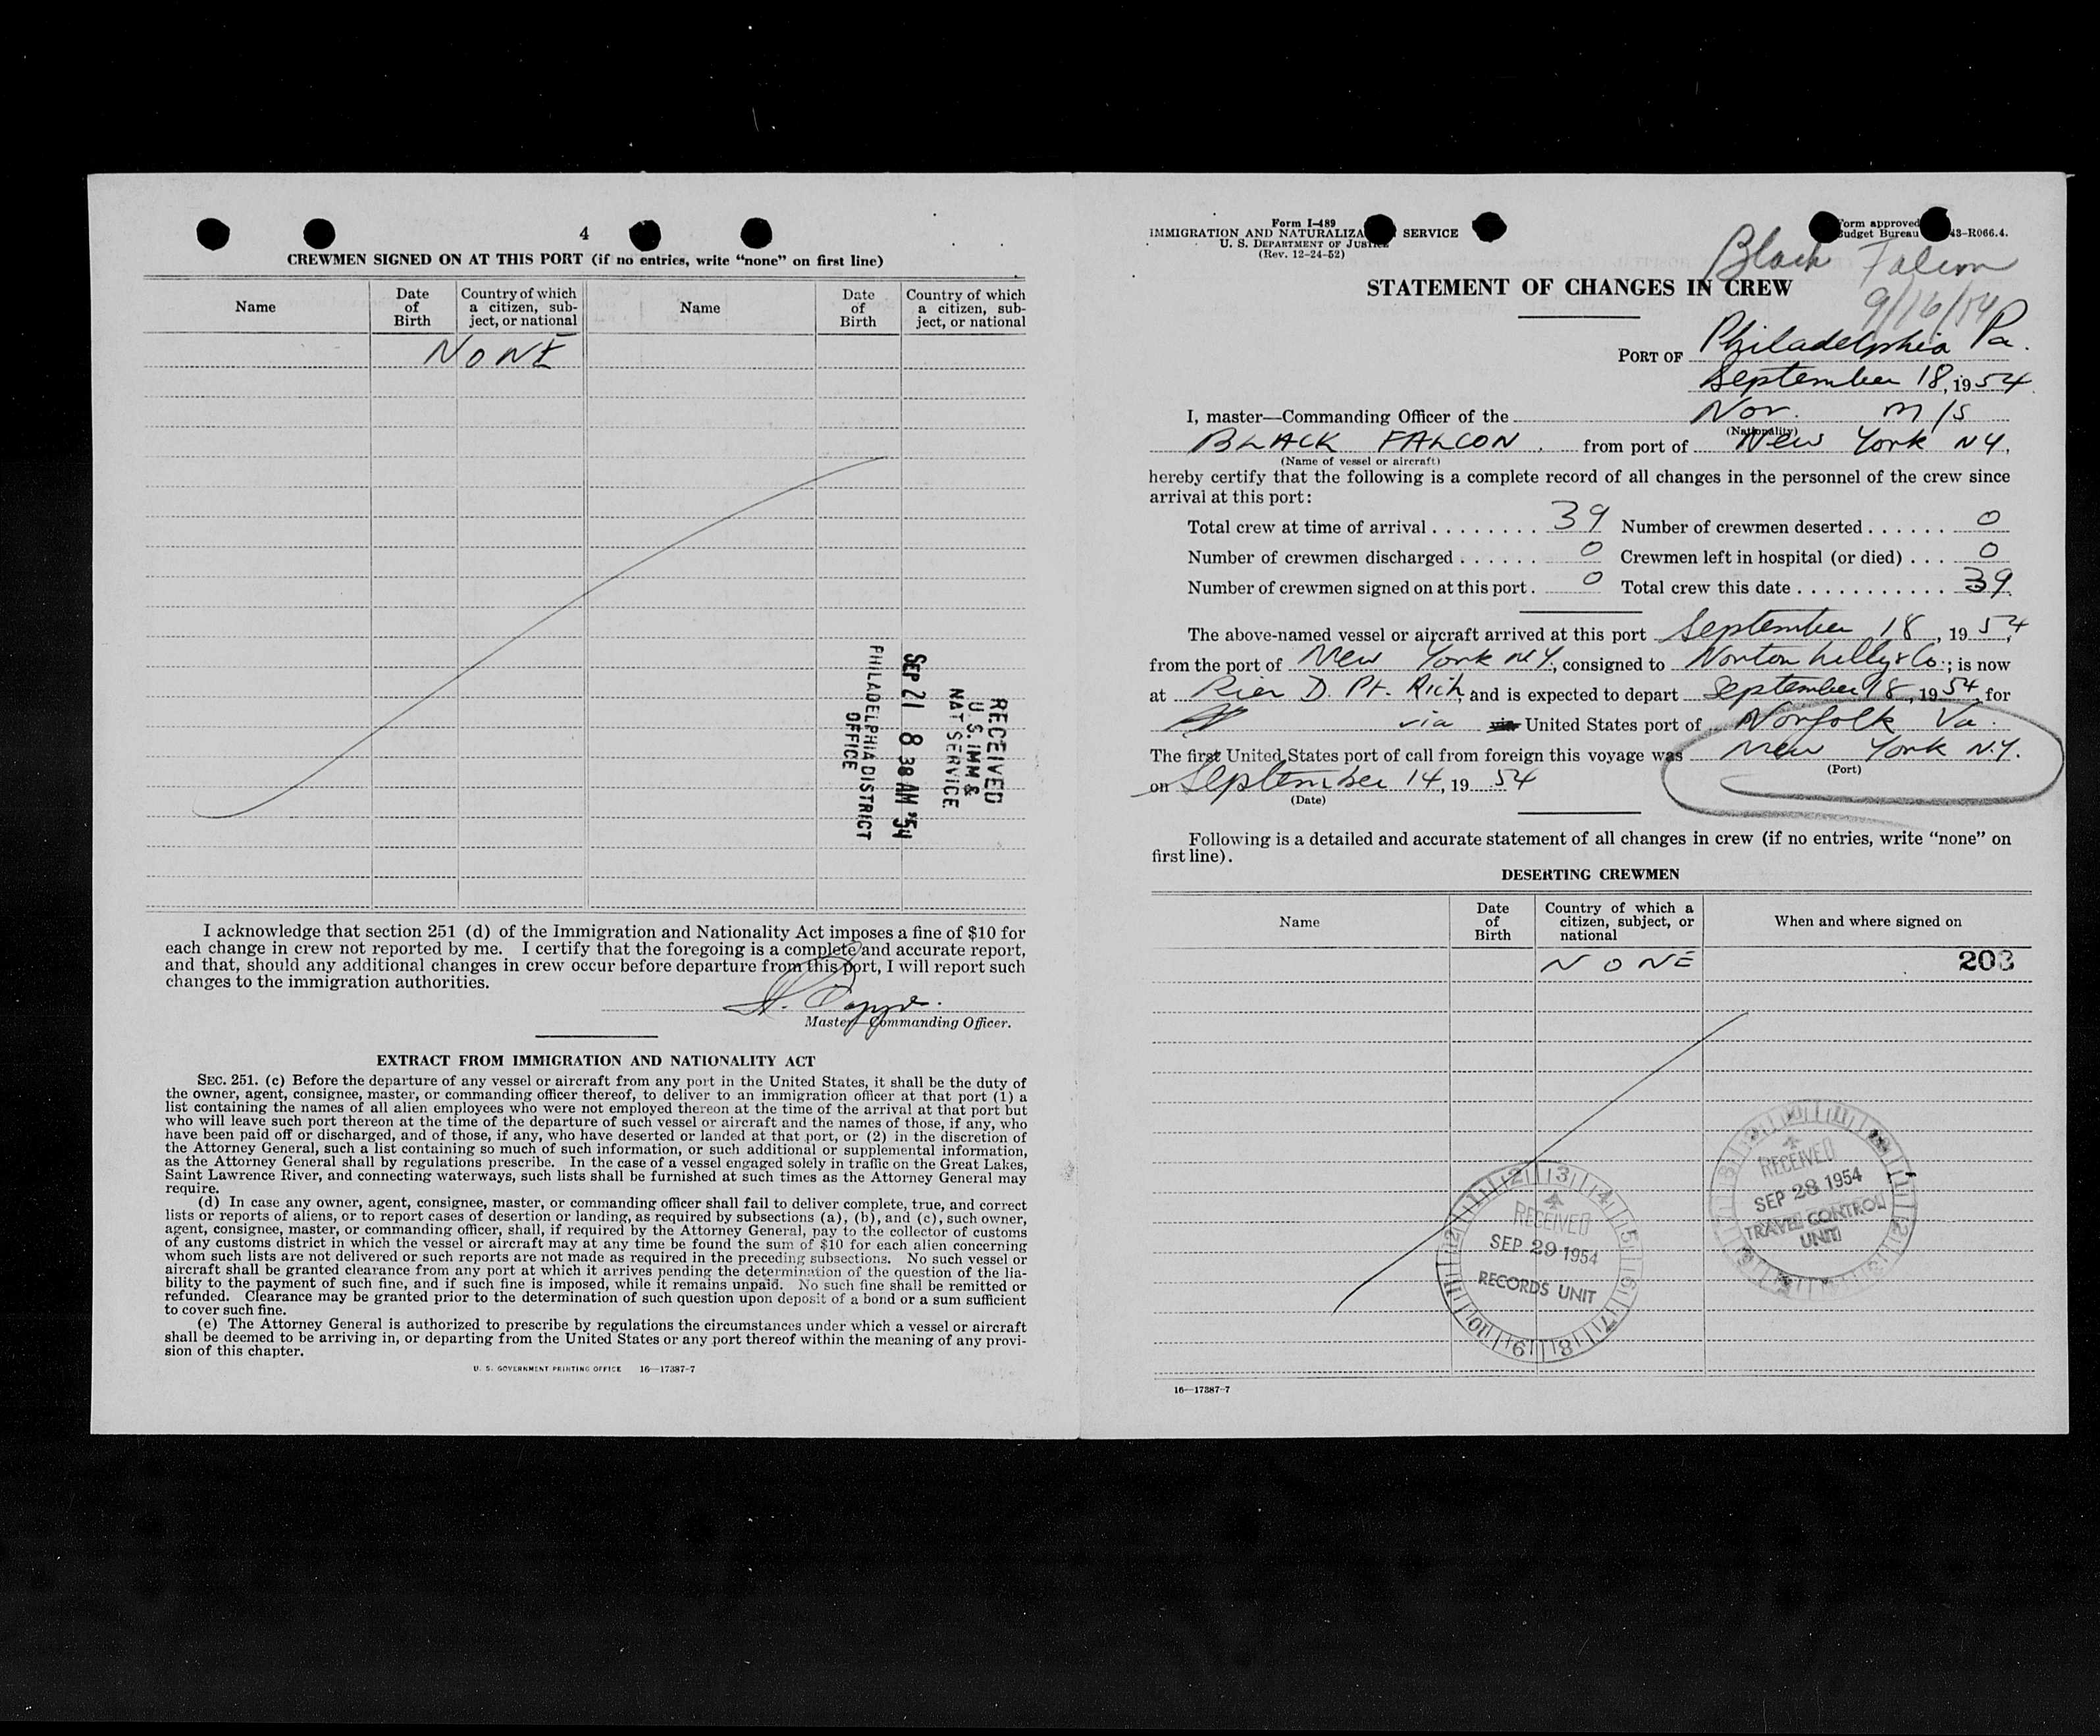 4
CREWMEN SIGNED ON AT THIS PORT (if no entries, write “none” on first line)
Name
Date of Birth
Country of which a citizen, subject, or national
Name
Date of Birth
Country of which a citizen, subject, or national
NONE
RECEIVED
U.S. IMM &
NAT SERVICE.
SEP 21 8 38 AM '54
PHILADELPHIA DISTRICT
OFFICE
I acknowledge that section 251 (d) of the Immigration and Nationality Act imposes a fine of $10 for
each change in crew not reported by me. I certify that the foregoing is a complete and accurate report,
and that, should any additional changes in crew occur before departure from this port, I will report such
changes to the immigration authorities.
Master—Commanding Officer.
EXTRACT FROM IMMIGRATION AND NATIONALITY ACT
SEC. 251. (c) Before the departure of any vessel or aircraft from any port in the United States, it shall be the duty of
the owner, agent, consignee, master, or commanding officer thereof, to deliver to an immigration officer at that port (1) a
list containing the names of all alien employees who were not employed thereon at the time of the arrival at that port but
who will leave such port thereon at the time of the departure of such vessel or aircraft and the names of those, if any, who
have been paid off or discharged, and of those, if any, who have deserted or landed at that port, or (2) in the discretion of
the Attorney General, such a list containing so much of such information, or such additional or supplemental information,
as the Attorney General shall by regulations prescribe. In the case of a vessel engaged solely in traffic on the Great Lakes,
Saint Lawrence River, and connecting waterways, such lists shall be furnished at such times as the Attorney General may
require.
(d) In case any owner, agent, consignee, master, or commanding officer shall fail to deliver complete, true, and correct
lists or reports of aliens, or to report cases of desertion or landing, as required by subsections (a), (b), and (c), such owner,
agent, consignee, master, or commanding officer, shall, if required by the Attorney General, pay to the collector of customs
of any customs district in which the vessel or aircraft may at any time be found the sum of $10 for each alien concerning
whom such lists are not delivered or such reports are not made as required in the preceding subsections. No such vessel or
aircraft shall be granted clearance from any port at which it arrives pending the determination of the question of the lia-
bility to the payment of such fine, and if such fine is imposed, while it remains unpaid. No such fine shall be remitted or
refunded. Clearance may be granted prior to the determination of such question upon deposit of a bond or a sum sufficient
to cover such fine.
(e) The Attorney General is authorized to prescribe by regulations the circumstances under which a vessel or aircraft
shall be deemed to be arriving in, or departing from the United States or any port thereof within the meaning of any provi-
sion of this chapter.
U. S. GOVERNMENT PRINTING OFFICE 16—17387-7
Form I-489
IMMIGRATION AND NATURALIZA SERVICE
U. S. DEPARTMENT OF JUSTICE
(Rev. 12-24-52)
Form approved
Budget Bureau 43-R066.4.
Black Falcon
9/16/54
STATEMENT OF CHANGES IN CREW
PORT OF Philadelphia Pa.
September 18, 1954
I, master—Commanding Officer of the Nor. m/s
(Nationality)
BLACK FALCON. from port of New York NY.
(Name of vessel or aircraft)
hereby certify that the following is a complete record of all changes in the personnel of the crew since
arrival at this port:
Total crew at time of arrival ........ 39 Number of crewmen deserted ...... 0
Number of crewmen discharged ...... 0 Crewmen left in hospital (or died) ... 0
Number of crewmen signed on at this port. 0 Total crew this date ........... 39
The above-named vessel or aircraft arrived at this port September 18, 1954
from the port of New York N.Y., consigned to Norton Lilly & Co.; is now
at Pier D. Pt. Rich, and is expected to depart September 18, 1954, for
via United States port of Norfolk Va.
The first United States port of call from foreign this voyage was New York N.Y.
(Port)
on September 14, 1954
(Date)
Following is a detailed and accurate statement of all changes in crew (if no entries, write “none” on
first line).
DESERTING CREWMEN
Name
Date of Birth
Country of which a citizen, subject, or national
When and where signed on
NONE
203
RECEIVED
SEP 28 1954
TRAVEL CONTROL
UNIT
RECEIVED
SEP 29 1954
RECORDS UNIT
16—17387-7